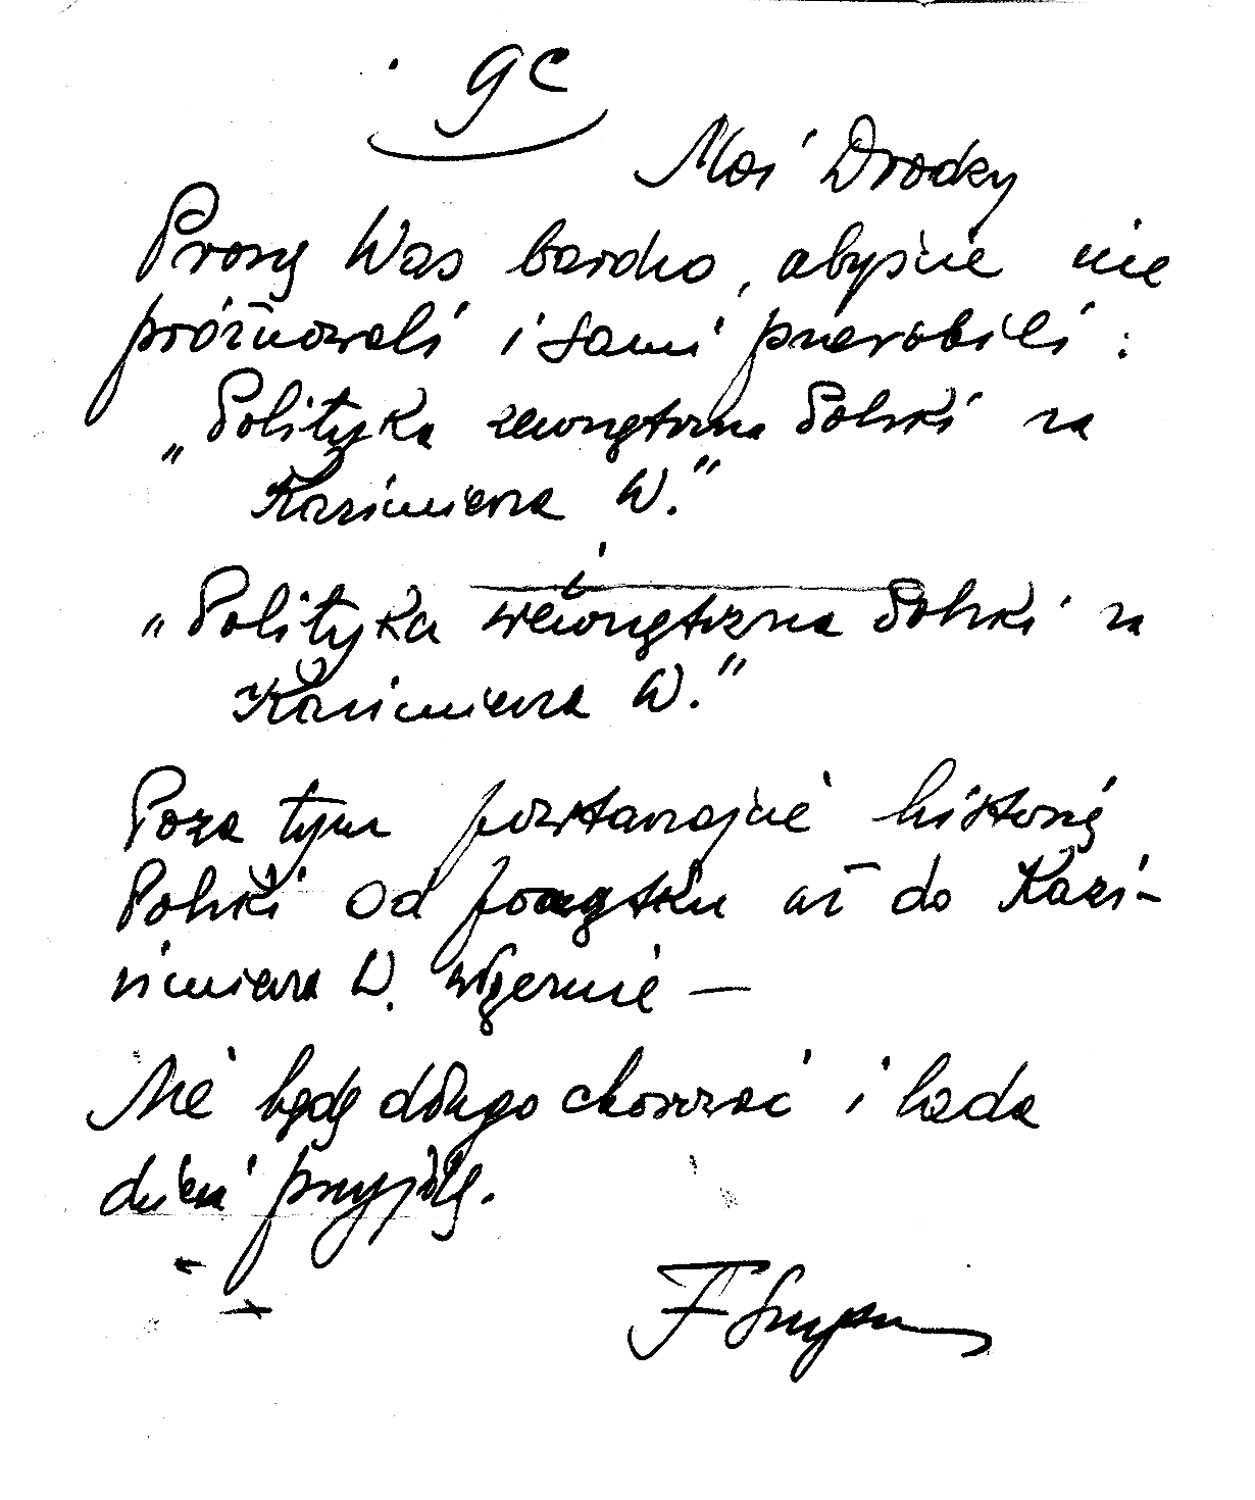 9c
Moi Drodzy
Proszę Was bardzo, abyście nie
próżnowali i sami przerobili:
„Polityka zewnętrzna Polski za
Kazimierza W."
i
„Polityka wewnętrzna Polski za
Kazimierza W."
Poza tym powtarzajcie historię
Polski od początku aż do Kazi-
mierza W. włącznie —
Nie będę długo chorzał i lada
dzień przyjdę.